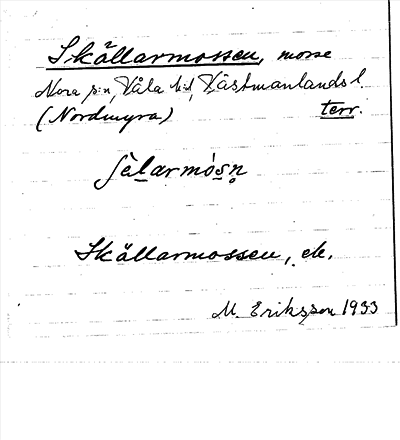 Skällarmossen, mosse
Nora s:n, Våla hd, Västmanlands l.
(Nordmyra) terr.
Skällarmossen, ek.
M. Eriksson 1933